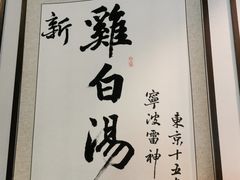 新
雞白湯
寧波雷神
東京十五